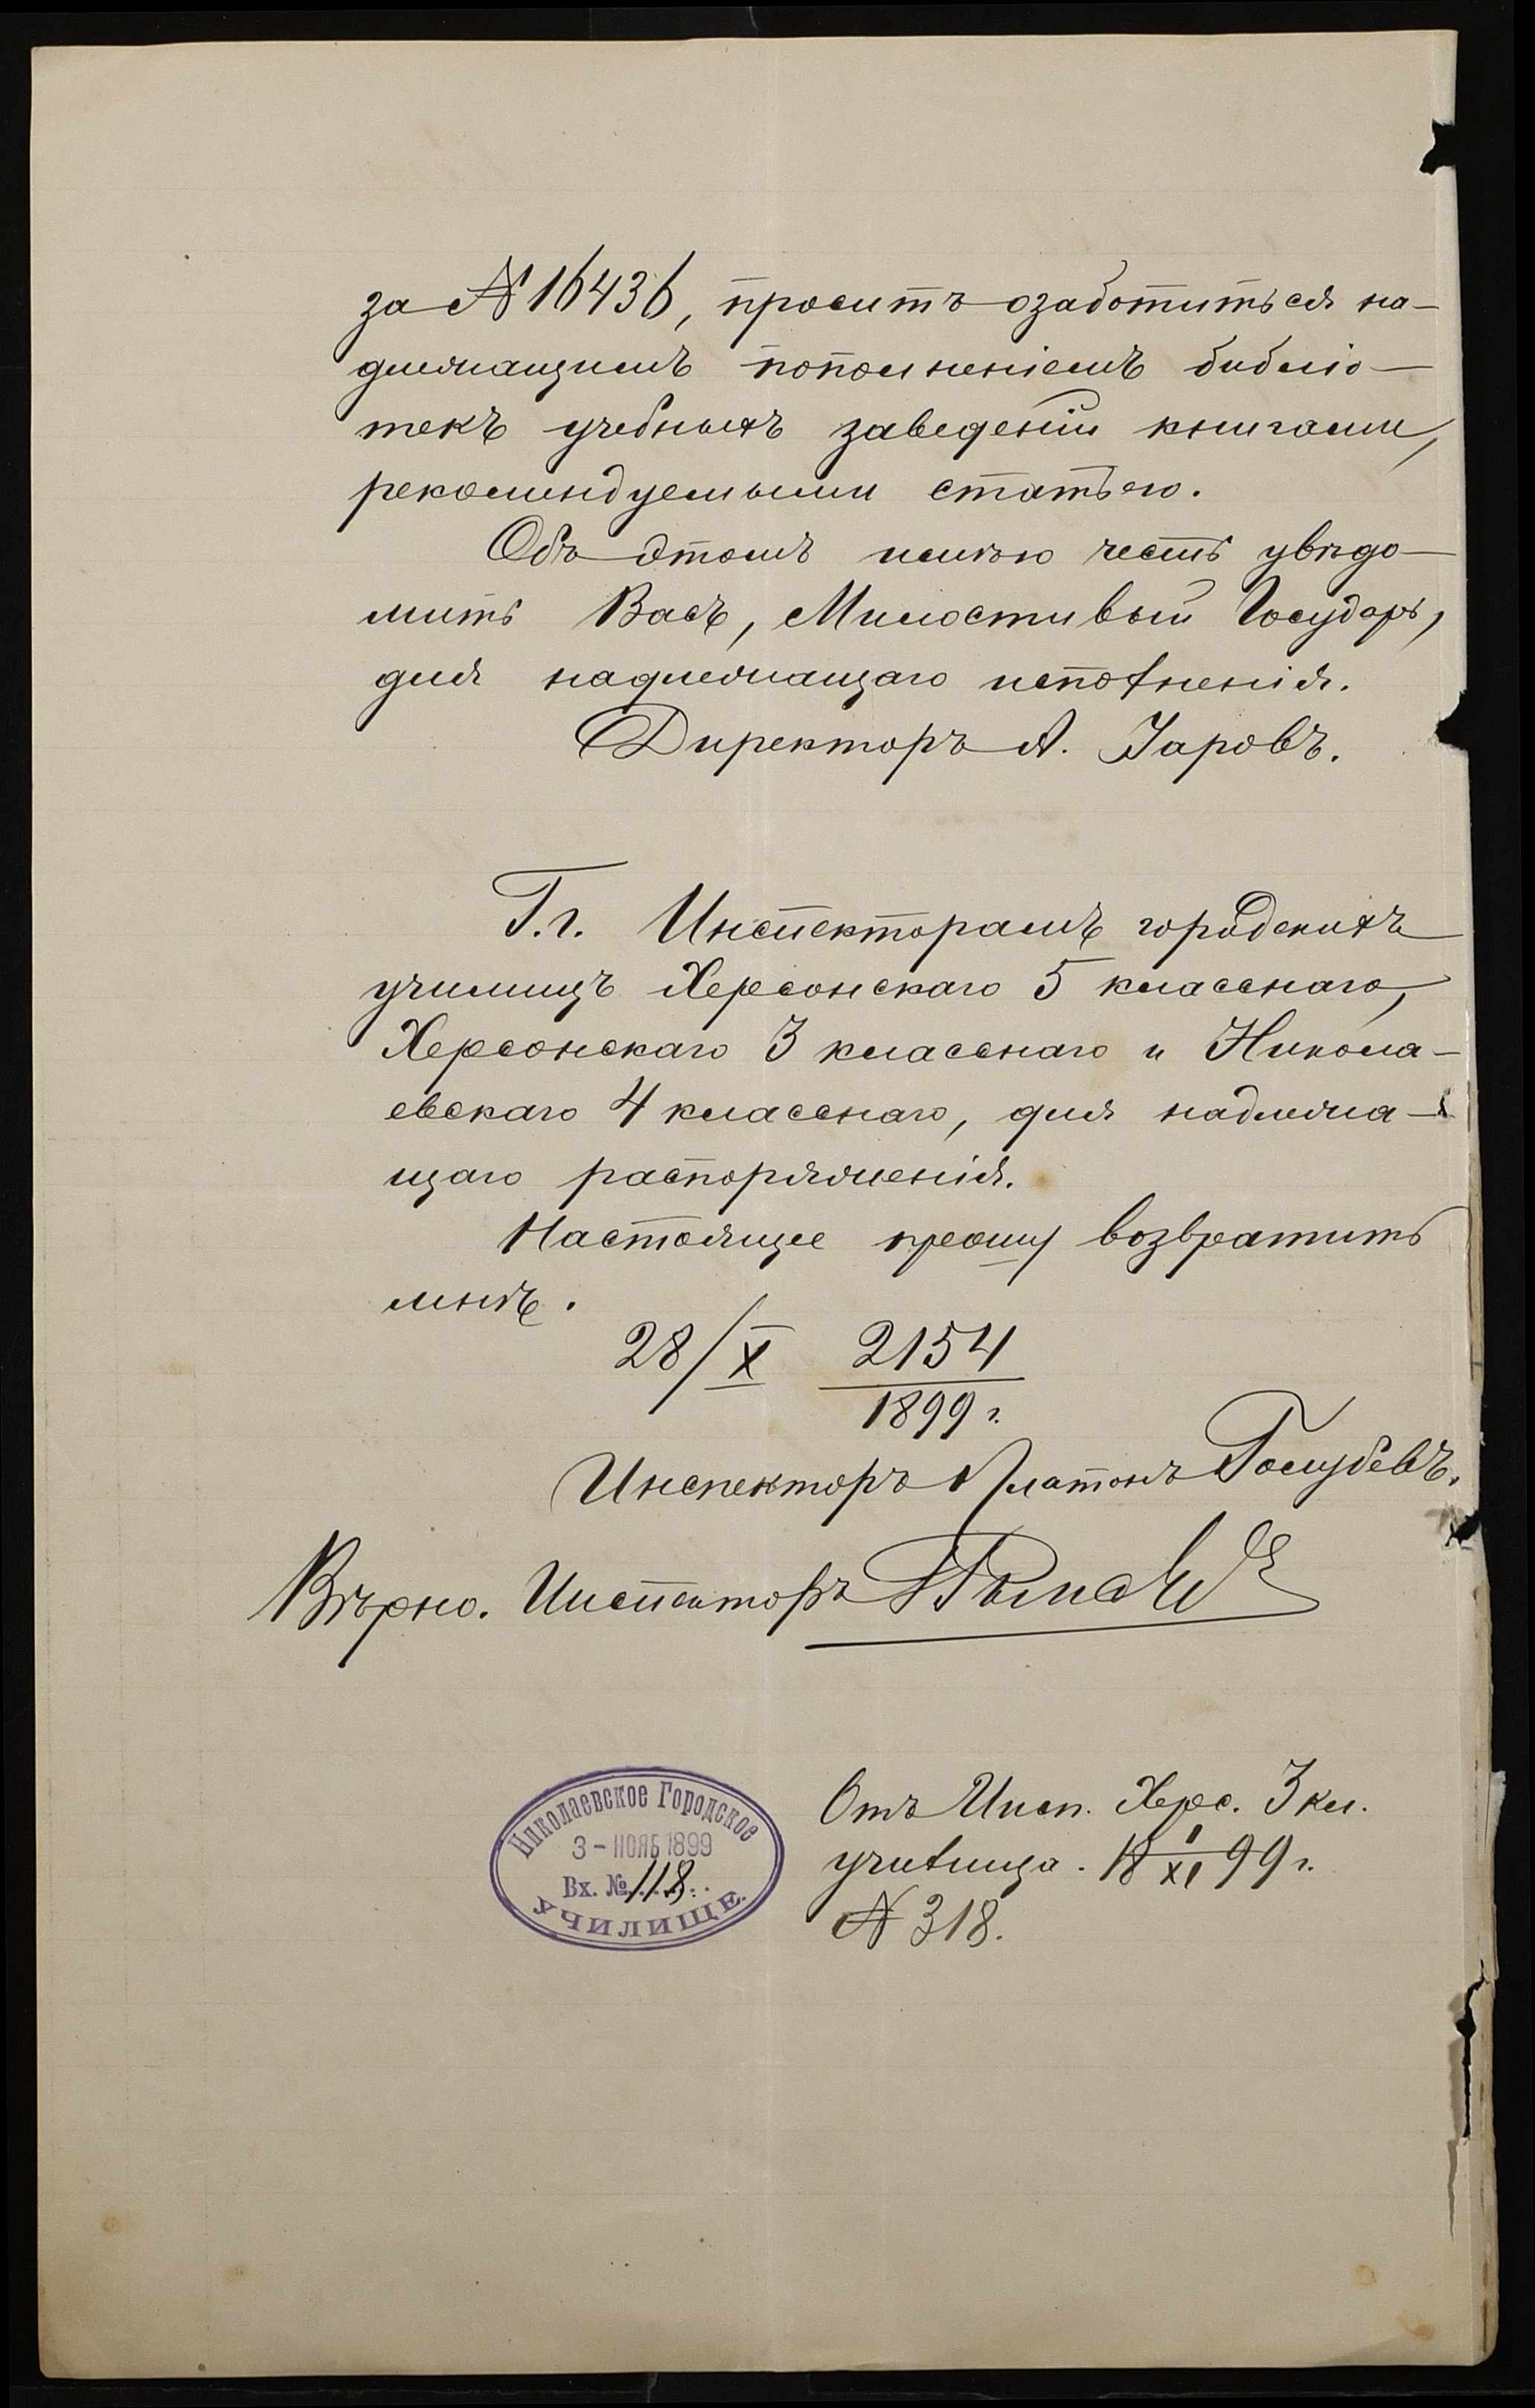 за № 16436, проситъ озаботиться на-
длежащимъ пополненіемъ библіо-
текъ учебныхъ заведеній книгами,
рекомендуемыми статьею.
Объ этомъ имѣю честь увѣдо-
мить Васъ, Милостивый Государь,
для надлежащаго исполненія.
Директоръ А.
Г.г. Инспекторамъ городскихъ
училищъ Херсонскаго 5 класснаго,
Херсонскаго 3 класснаго и Никола-
евскаго 4 класснаго, для надлежа-
щаго распоряженія.
Настоящее прошу возвратить
мнѣ.
28/X 2154
1899 г.
Инспекторъ Платонъ Голубевъ.
Вѣрно. Инспекторъ
Николаевское Городское
3 - НОЯБ 1899
Вх. № 118
УЧИЛИЩЕ.
Отъ Инсп. Херс. 3 кл.
училища. 18 1/XI 99 г.
№ 318.